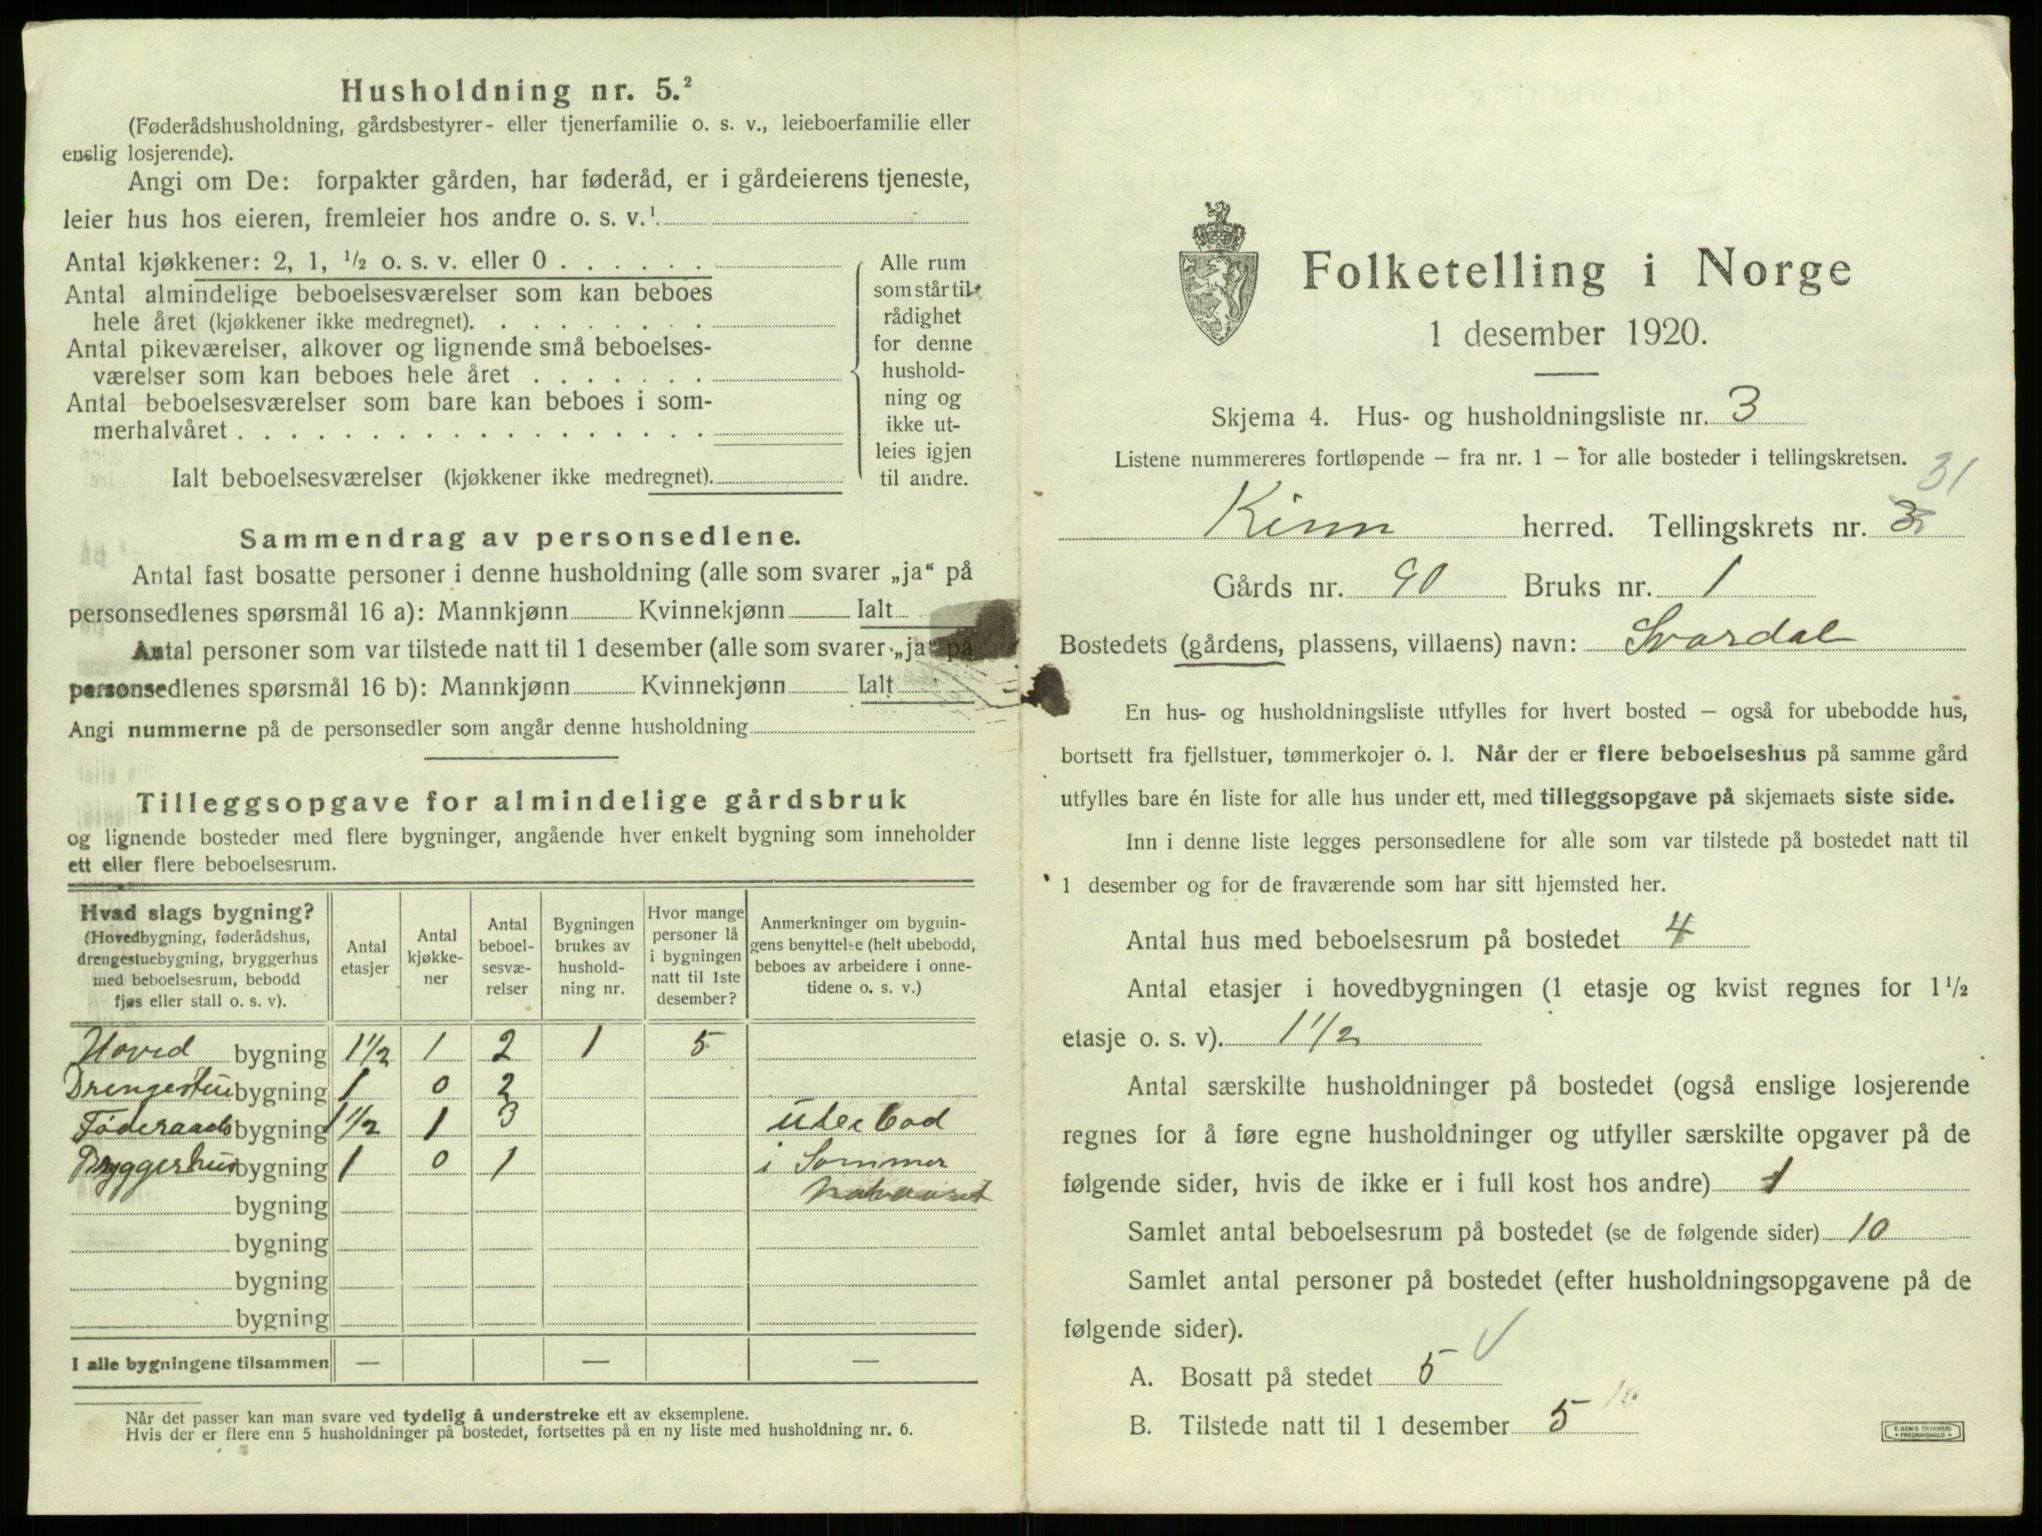 Husholdning nr. 5.²
(Føderådshusholdning, gårdsbestyrer- eller tjenerfamilie o. s. v., leieboerfamilie eller
enslig losjerende).
Angi om De: forpakter gården, har føderåd, er i gårdeierens tjeneste,
leier hus hos eieren, fremleier hos andre o. s. v.¹
Antal kjøkkener: 2, 1, ½ o. s. v. eller 0 . . . . . .
Antal almindelige beboelsesværelser som kan beboes
hele året (kjøkkener ikke medregnet). . . . . . . . .
Antal pikeværelser, alkover og lignende små beboelses-
værelser som kan beboes hele året . . . . . . .
Antal beboelsesværelser som bare kan beboes i som-
merhalvåret . . . . . . . . . . . . . . . . . .
Ialt beboelsesværelser (kjøkkener ikke medregnet).
Alle rum
som står til
rådighet
for denne
hushold-
ning og
ikke ut-
leies igjen
til andre.
Sammendrag av personsedlene.
Antal fast bosatte personer i denne husholdning (alle som svarer „ja“ på
personsedlenes spørsmål 16 a): Mannkjønn Kvinnekjønn Ialt
Antal personer som var tilstede natt til 1 desember (alle som svarer „ja“ på
personsedlenes spørsmål 16 b): Mannkjønn Kvinnekjønn Ialt
Angi nummerne på de personsedler som angår denne husholdning
Tilleggsopgave for almindelige gårdsbruk
og lignende bosteder med flere bygninger, angående hver enkelt bygning som inneholder
ett eller flere beboelsesrum.
Hvad slags bygning?
(Hovedbygning, føderådshus,
drengestuebygning, bryggerhus
med beboelsesrum, bebodd
fjøs eller stall o. s. v).
Antal
etasjer
Antal
kjøkke-
ner
Antal
beboel-
sesvæ-
relser
Bygningen
brukes av
hushold-
ning nr.
Hvor mange
personer lå
i bygningen
natt til 1ste
desember?
Anmerkninger om bygnin-
gens benyttelse (helt ubebodd,
beboes av arbeidere i onne-
tidene o. s. v.)
Hoved bygning 1½ 1 2 1 5
Drengestue bygning 1 0 2
Føderaads bygning 1½ 1 3 ubebod
Bryggerhus bygning 1 0 1 i Sommer
halvaaret
bygning
bygning
bygning
bygning
I alle bygningene tilsammen — — —
Når det passer kan man svare ved tydelig å understreke ett av eksemplene.
Hvis der er flere enn 5 husholdninger på bostedet, fortsettes på en ny liste med husholdning nr. 6.
Folketelling i Norge
1 desember 1920.
Skjema 4. Hus- og husholdningsliste nr. 3
Listene nummereres fortløpende – fra nr. 1 – for alle bosteder i tellingskretsen.
31
Kinn herred. Tellingskrets nr.
Gårds nr. 90 Bruks nr. 1
Bostedets (gårdens, plassens, villaens) navn: Svardal
En hus- og husholdningsliste utfylles for hvert bosted – også for ubebodde hus,
bortsett fra fjellstuer, tømmerkojer o. l. Når der er flere beboelseshus på samme gård
utfylles bare én liste for alle hus under ett, med tilleggsopgave på skjemaets siste side.
Inn i denne liste legges personsedlene for alle som var tilstede på bostedet natt til
1 desember og for de fraværende som har sitt hjemsted her.
Antal hus med beboelsesrum på bostedet 4
Antal etasjer i hovedbygningen (1 etasje og kvist regnes for 1½
etasje o. s. v). 1½
Antal særskilte husholdninger på bostedet (også enslige losjerende
regnes for å føre egne husholdninger og utfyller særskilte opgaver på de
følgende sider, hvis de ikke er i full kost hos andre) 1
Samlet antal beboelsesrum på bostedet (se de følgende sider) 10
Samlet antal personer på bostedet (efter husholdningsopgavene på de
følgende sider).
A. Bosatt på stedet 5
B. Tilstede natt til 1 desember 5